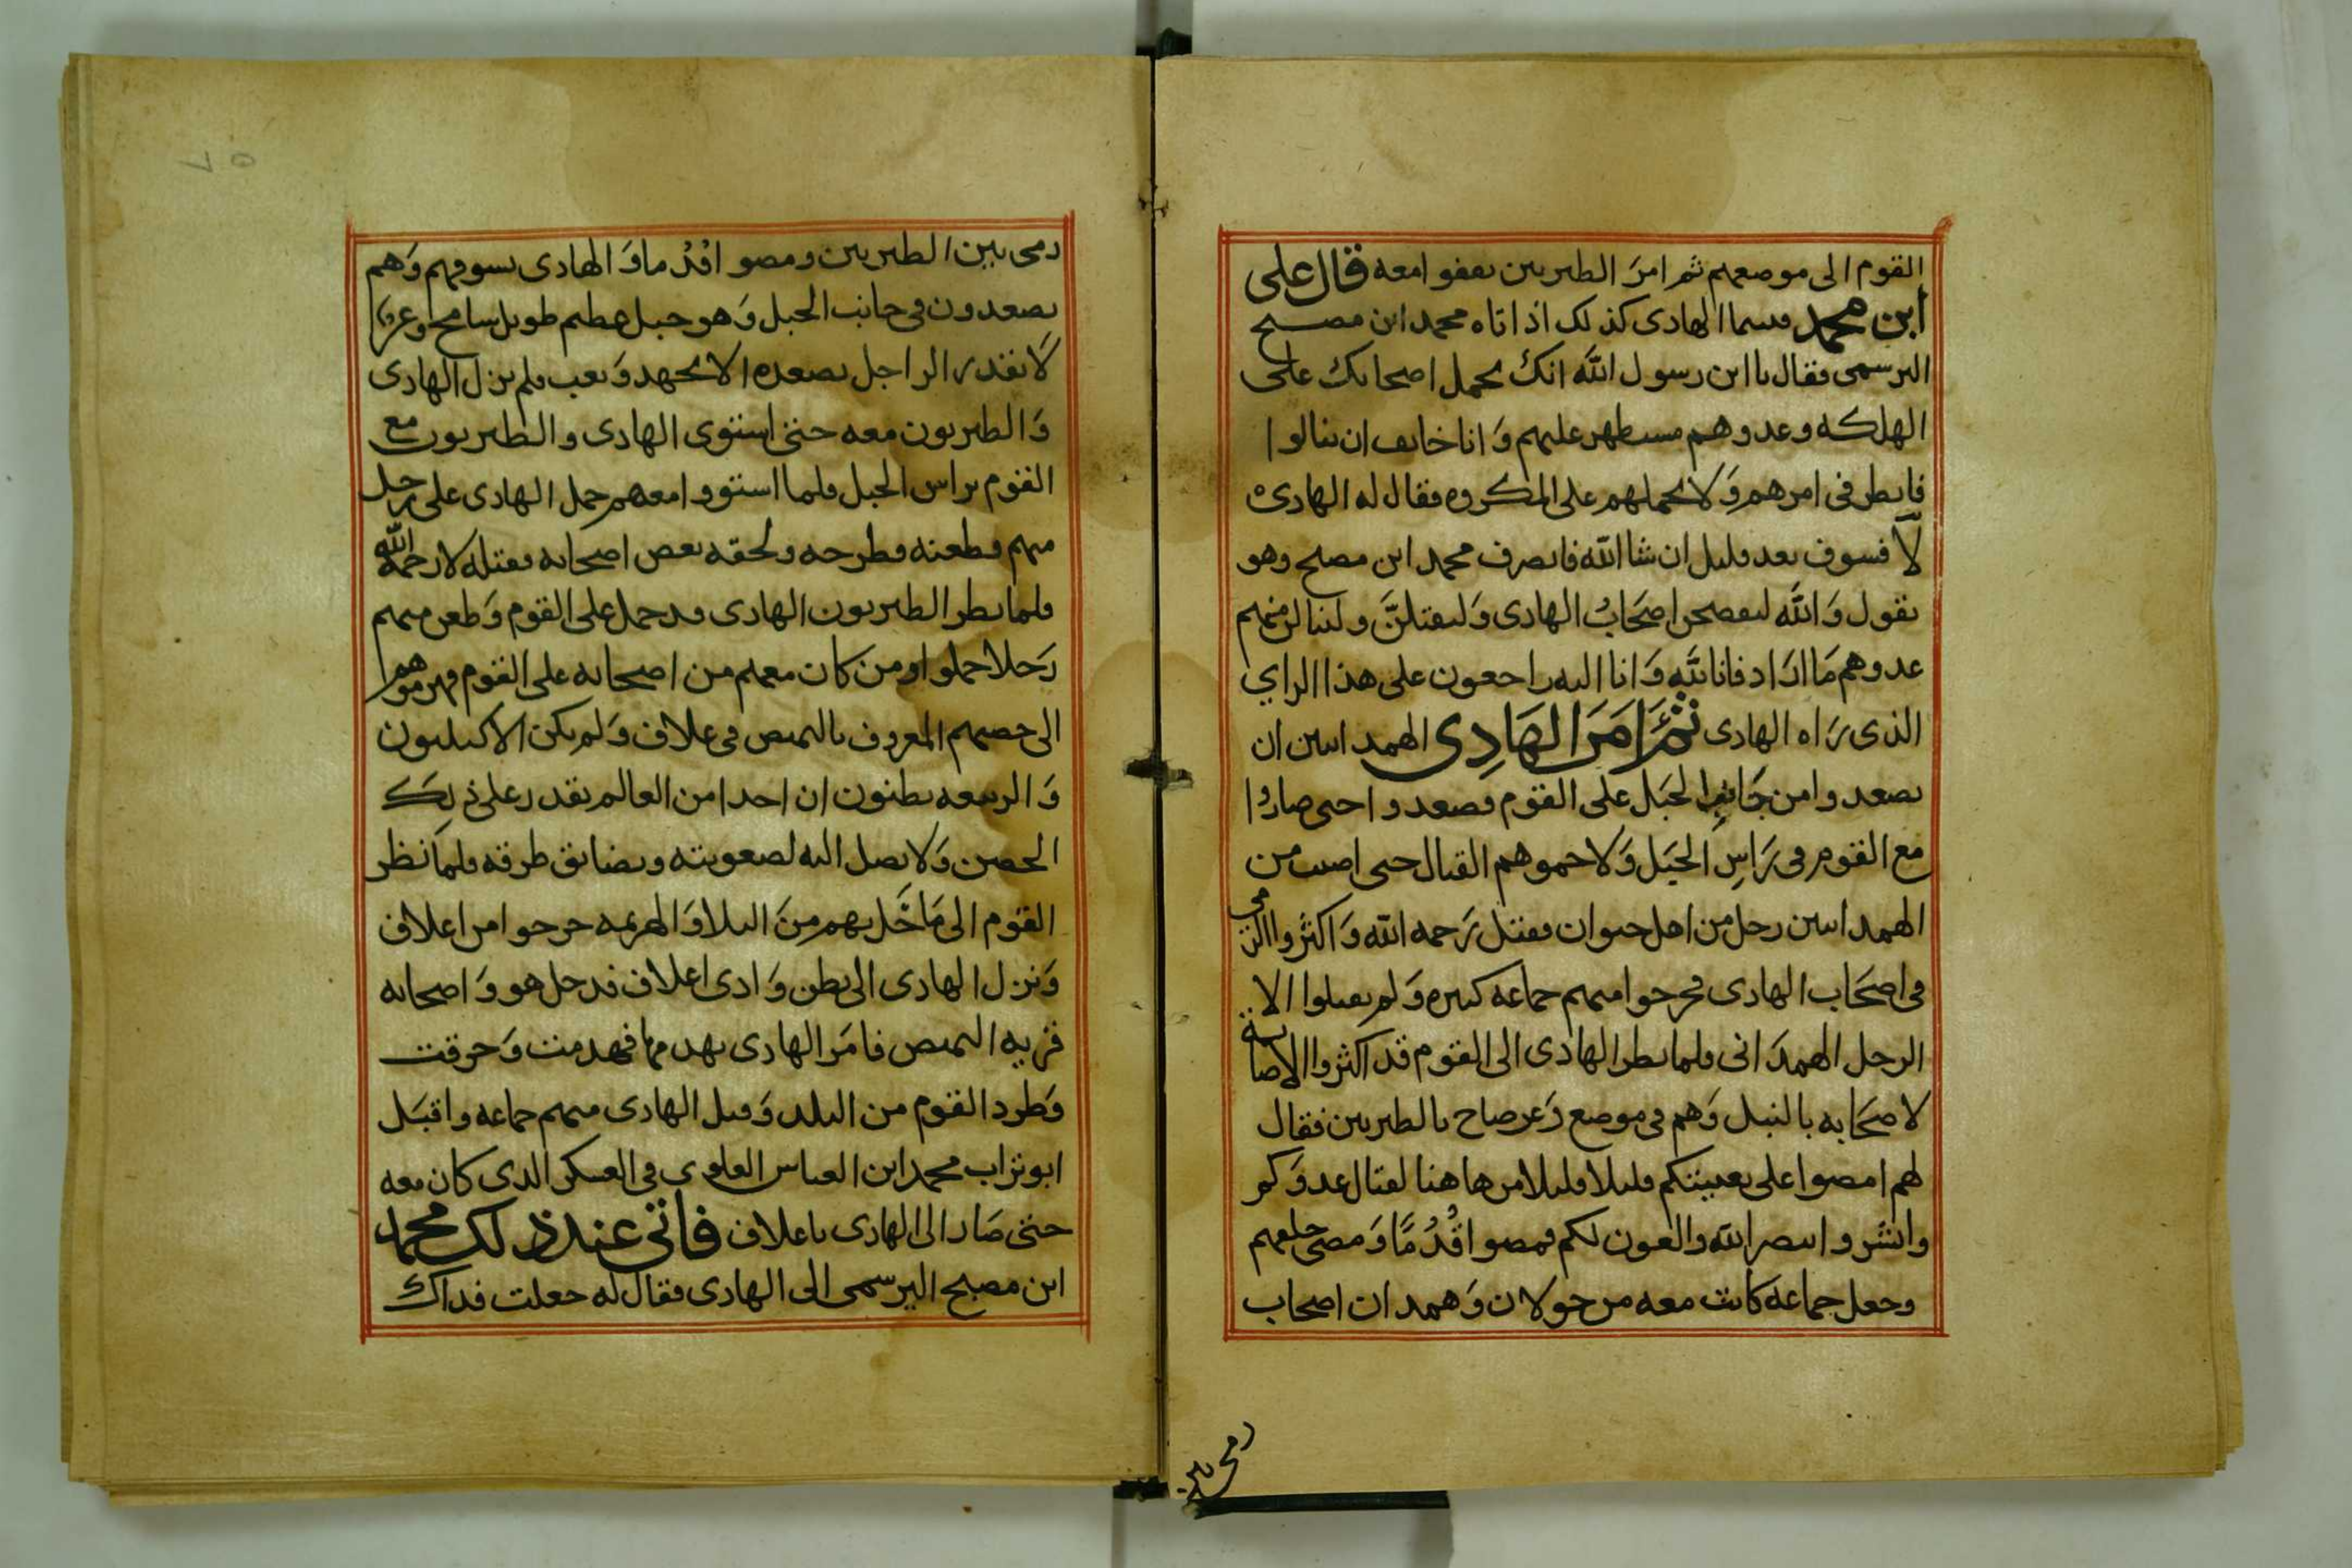 القوم الى موضعهم ثم امرَ الطبريين يقفوا معه قال على
ابن محمد فبينما الهادى كذلك اذ اتاه محمد ابن مصبح
البرسمى فقال يا ابن رسول الله انك تحمل اصحابك على
الهلكه وعدوهم مستظهر عليهم وَانا خايف ان ينالوا
فانظر فى امرهم وَلا تحملهم على المكروه فقال له الهادى
لا فسوف بعد قليل ان شا الله فانصرف محمد ابن مصبح وهو
يقول وَالله اصحَابُ الهادى وَليقتلنَّ ولينالن منهم
عدوهم مَا ارَاد فانا لله وَانا اليه راجعون على هذا الراي
الذى رَاه الهادى ثمَّ امَرَ الهَادِى الهمدانيين ان
يصعدوا من جَانِبِ الجبَل على القوم فصعدوا حتى صارُوا
مع القوم فى رَاسِ الجبَل وَلاحموهم القتال حتى اصيب من
الهمدانيين رجل من اهل خيوان فقتل رَحمه الله وَاكثرَوا الرمى
فى اصحَاب الهادى فجرحوا منهم جماعه كثيره وَلم يقتلوا الا
الرجل الهمدَانى فلما نظر الهادى الى القوم قد اكثروا الاصابة
لاصحَابه بالنبل وَهم فى موضع وَعر صاح بالطبريين فقال
لهم امضوا على تعبيتكم قليلا قليلا من هاهنا لقتال عدوَكم
وابشَروا بنصر الله والعون لكم فمضوا قُدُمًا وَمضى خلفهم
وجعل جماعَه كانت معه من خولان وَهمدان اصحاب
رمى بين
رمى بين الطبريين ومضوا قدُما وَالهادى يسوقهم وَهم
يصعدون فى جانب الجبل وَهو جبل عظيم طويل شامخ وعر
لا يقدر الراجل يصعده الا بجهد وَتعب فلم يزل الهادى
وَالطبريون معه حتى استوى الهادى والطبريون مع
القوم براس الجبل فلما استووا معهم حمل الهادى على رجل
منهم فطعنه فطرحه ولحقه بعض اصحابه فقتله لا رحمه الله
فلما نظر الطبريون الهادى قد حمل على القوم وَطعن منهم
رَجلا حملوا ومن كان معهم من اصحابه على القوم فهزموهم
الى حصنهم المعروف بالنميص فى علاف وَلم يكن الاكيليون
وَالربيعه يظنون ان احدا من العالم يقدر على ذلك
الحصن وَلا يصل اليه لصعوبته وتضايق طرقه فلمَا نظر
القوم الى مَا حَل بهم منَ البلا وَالهزيمه خرجوا من اعلاف
وَنزل الهادى الى بطن وَادى اعلاف فدخل هو وَاصحابه
قريه النميص فامَر الهادى بهدمها فهدمت وَحرقت
وَطرد القوم من البلد وَقتل الهادى منهم جماعه واقبَل
ابو تراب محمد ابن العباس العلوى فى العسكر الذى كان معه
حتى صَار الى الهادى باعلاف فاتى عند ذلك محمد
ابن مصبح البرسمى الى الهادى فقال له جعلت فداك